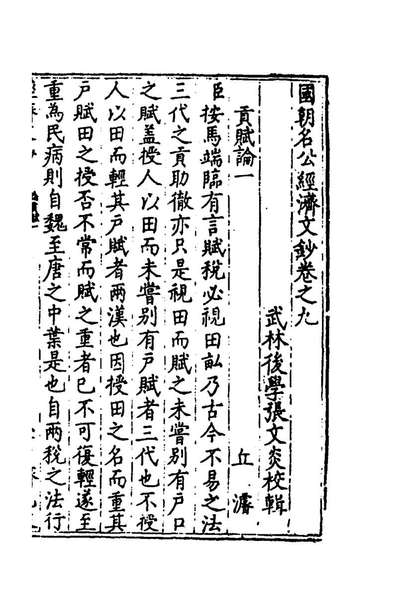 國朝名公經濟文鈔卷之九
武林後學張文炎校輯
貢賦論一
丘濬
臣按馬端臨有言賦稅必視田畝乃古今不易之法
三代之貢助徹亦只是視田而賦之未嘗別有戶口
之賦蓋授人以田而未嘗別有戶賦者三代也不授
人以田而輕其戶賦者兩漢也因授田之名而重其
戶賦田之授否不常而賦之重者已不可復輕遂至
重為民病則自魏至唐之中葉是也自兩稅之法行